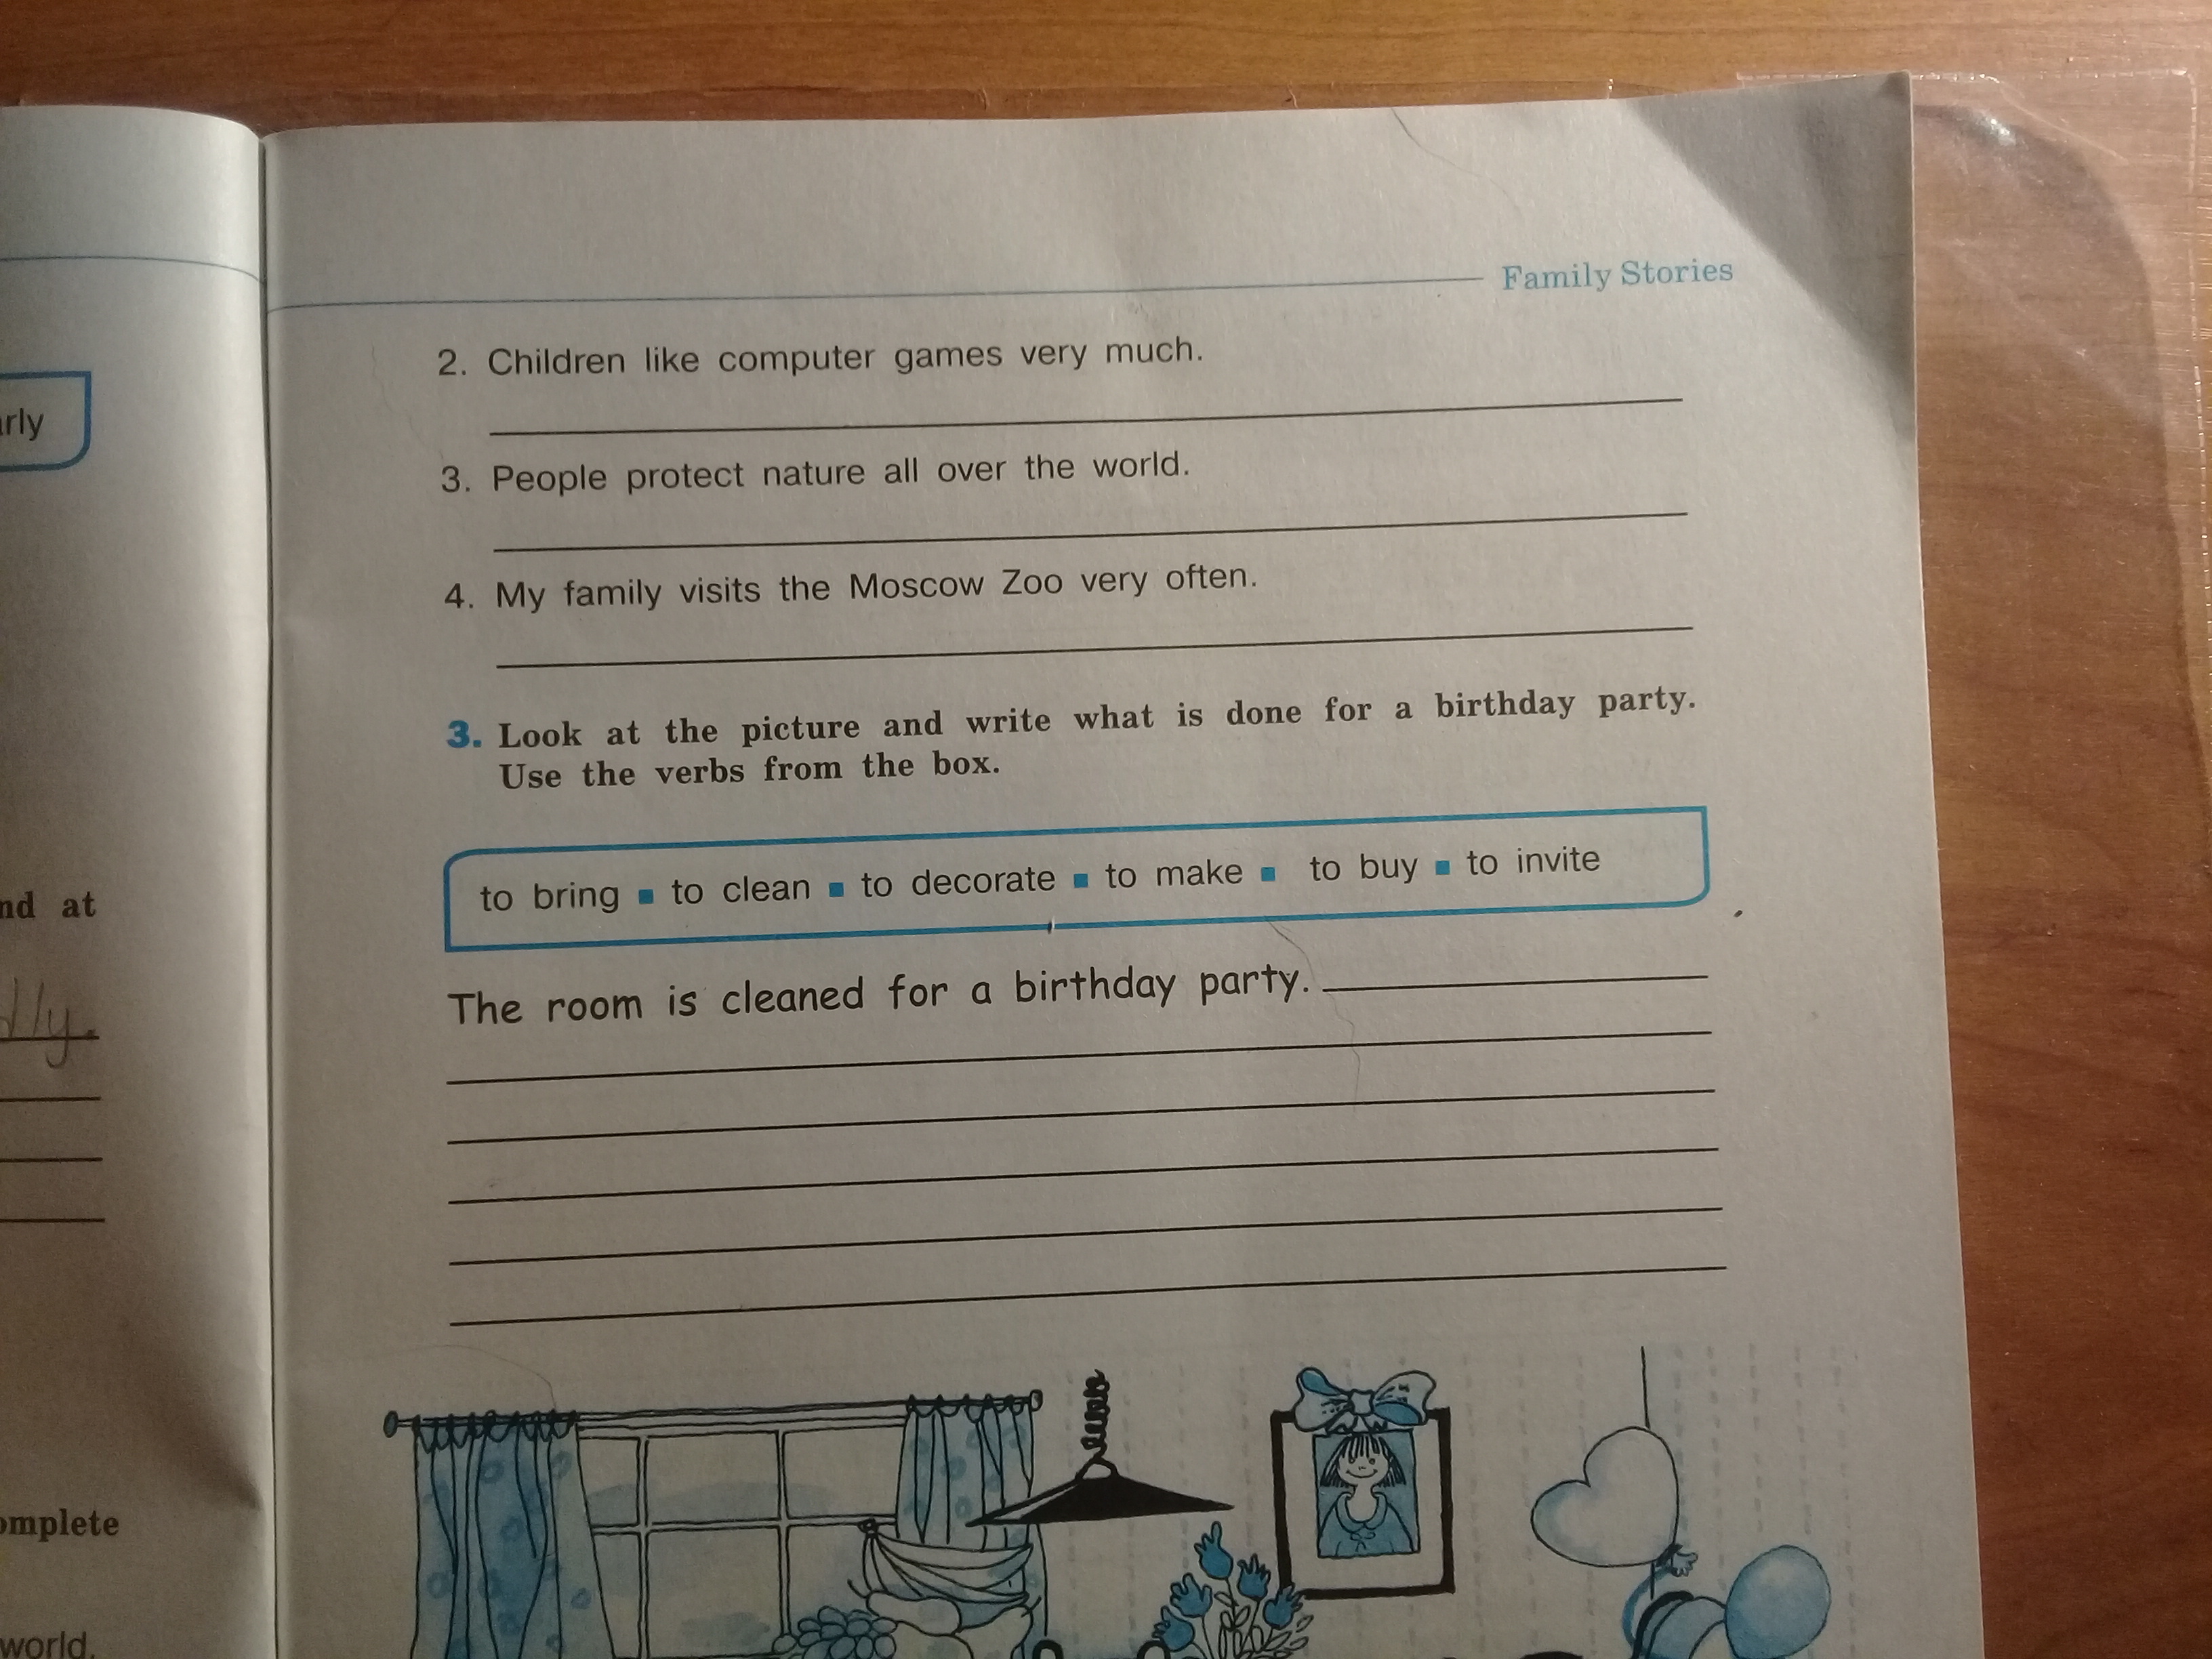 Family Stories
2. Children like computer games very much.
3. People protect nature all over the world.
4. My family visits the Moscow Zoo very often.
3. Look at the picture and write what is done for a birthday party.
Use the verbs from the box.
to bring ▪ to clean ▪ to decorate ▪ to make ▪ to buy ▪ to invite
The room is cleaned for a birthday party.
nd at
world.